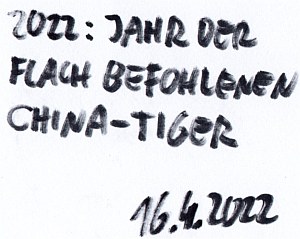 2022: JAHR DER
FLACH BEFOHLENEN
CHINA-TIGER
16.4.2022